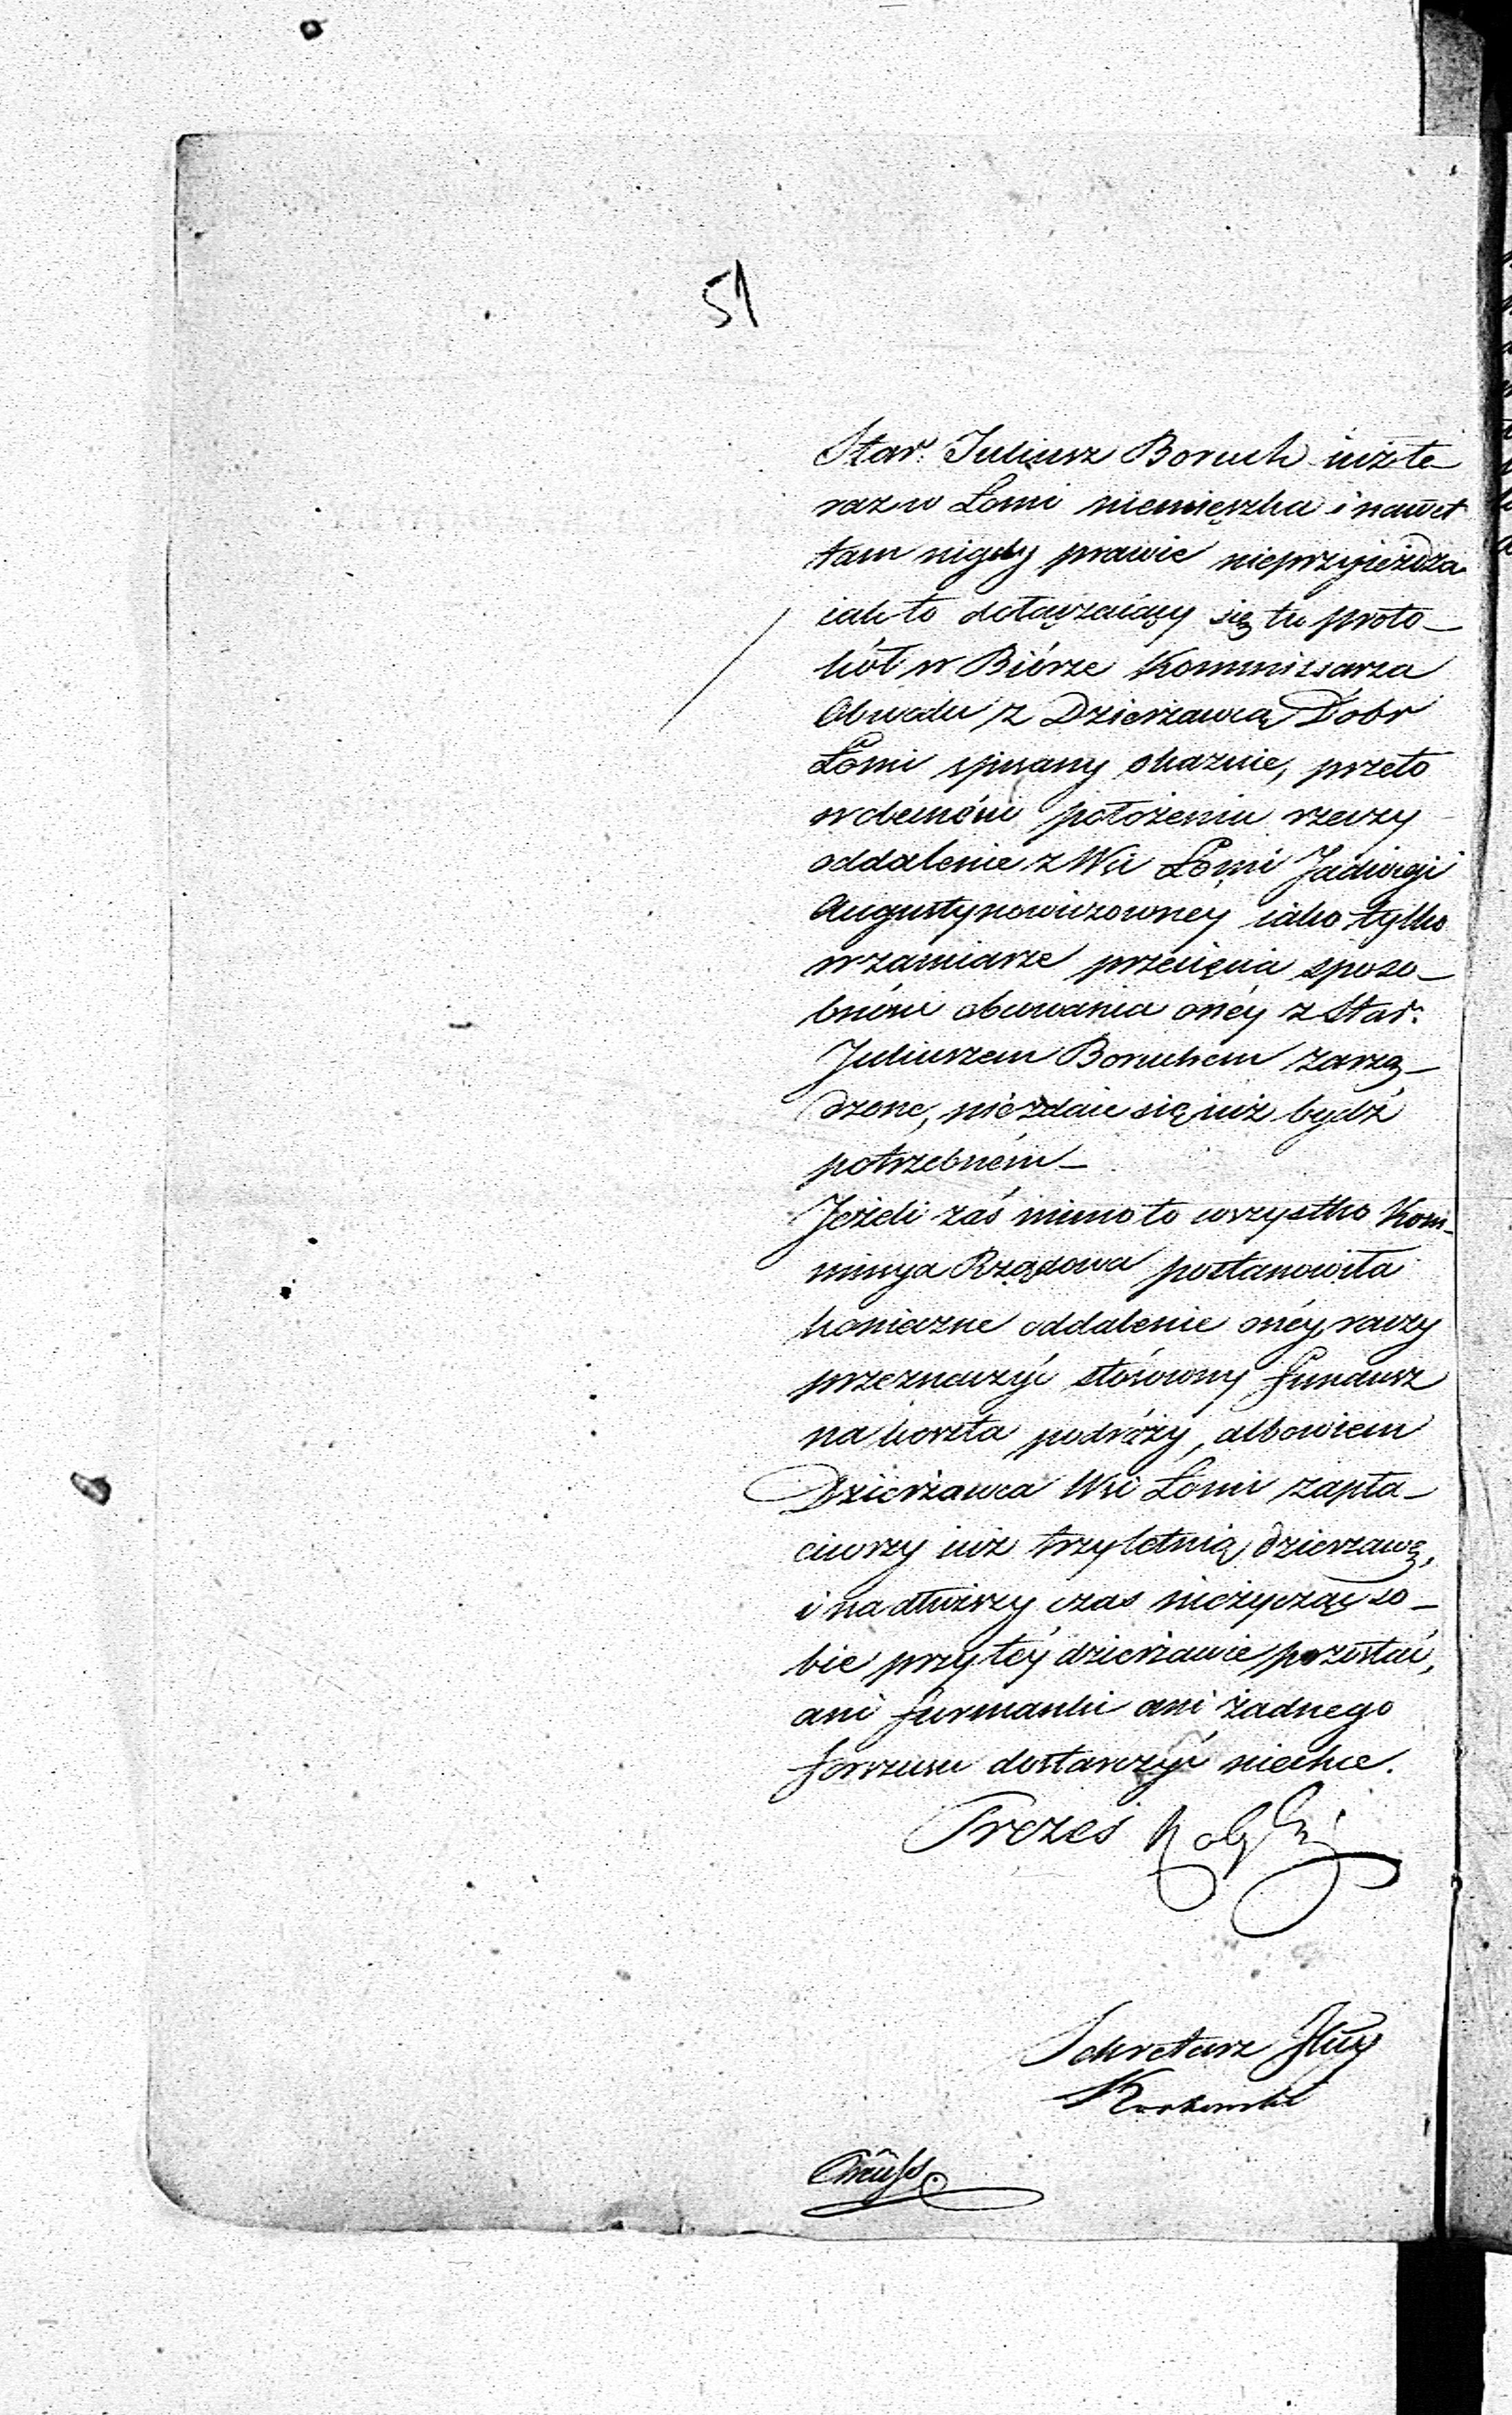 51
Star. Juliusz Boruch iuż te-
raz w Łomi niemięszka i nawet
tam nigdy prawie nieprzyieżdza
iak to dołączaiący się tu proto-
kół w Biórze Kommissarza
Obwodu z Dzierżawcą Dobr
Łomi spisany okazuie, przeto
w obecnem położeniu rzeczy
oddalenie z Wsi Łomi Jadwigi
Augustynowiczowney iako tylko
w zamiarze przecięcia sposo-
bności obcowania onéy z Star.
Juliuszem Boruchem zarzą-
dzone, niezdaie się iuż bydź
potrzebném-
Jeżeli zaś mimo to wszystko Kom-
missya Rządowa postanowiła
konieczne oddalenie onéy, raczy
przeznaczyć stósowny fundusz
na koszta podróży, albowiem
Dzierżawca Wsi Łomi zapła-
ciwszy iuż trzyletnią dzierzawę,
i na dłuższy czas nieżycząc so-
bie przy téy dzierżawie pozostać,
ani furmanki ani żadnego
forszusu dostarczyć niechce.
Prezes
Sekretarz Jlny